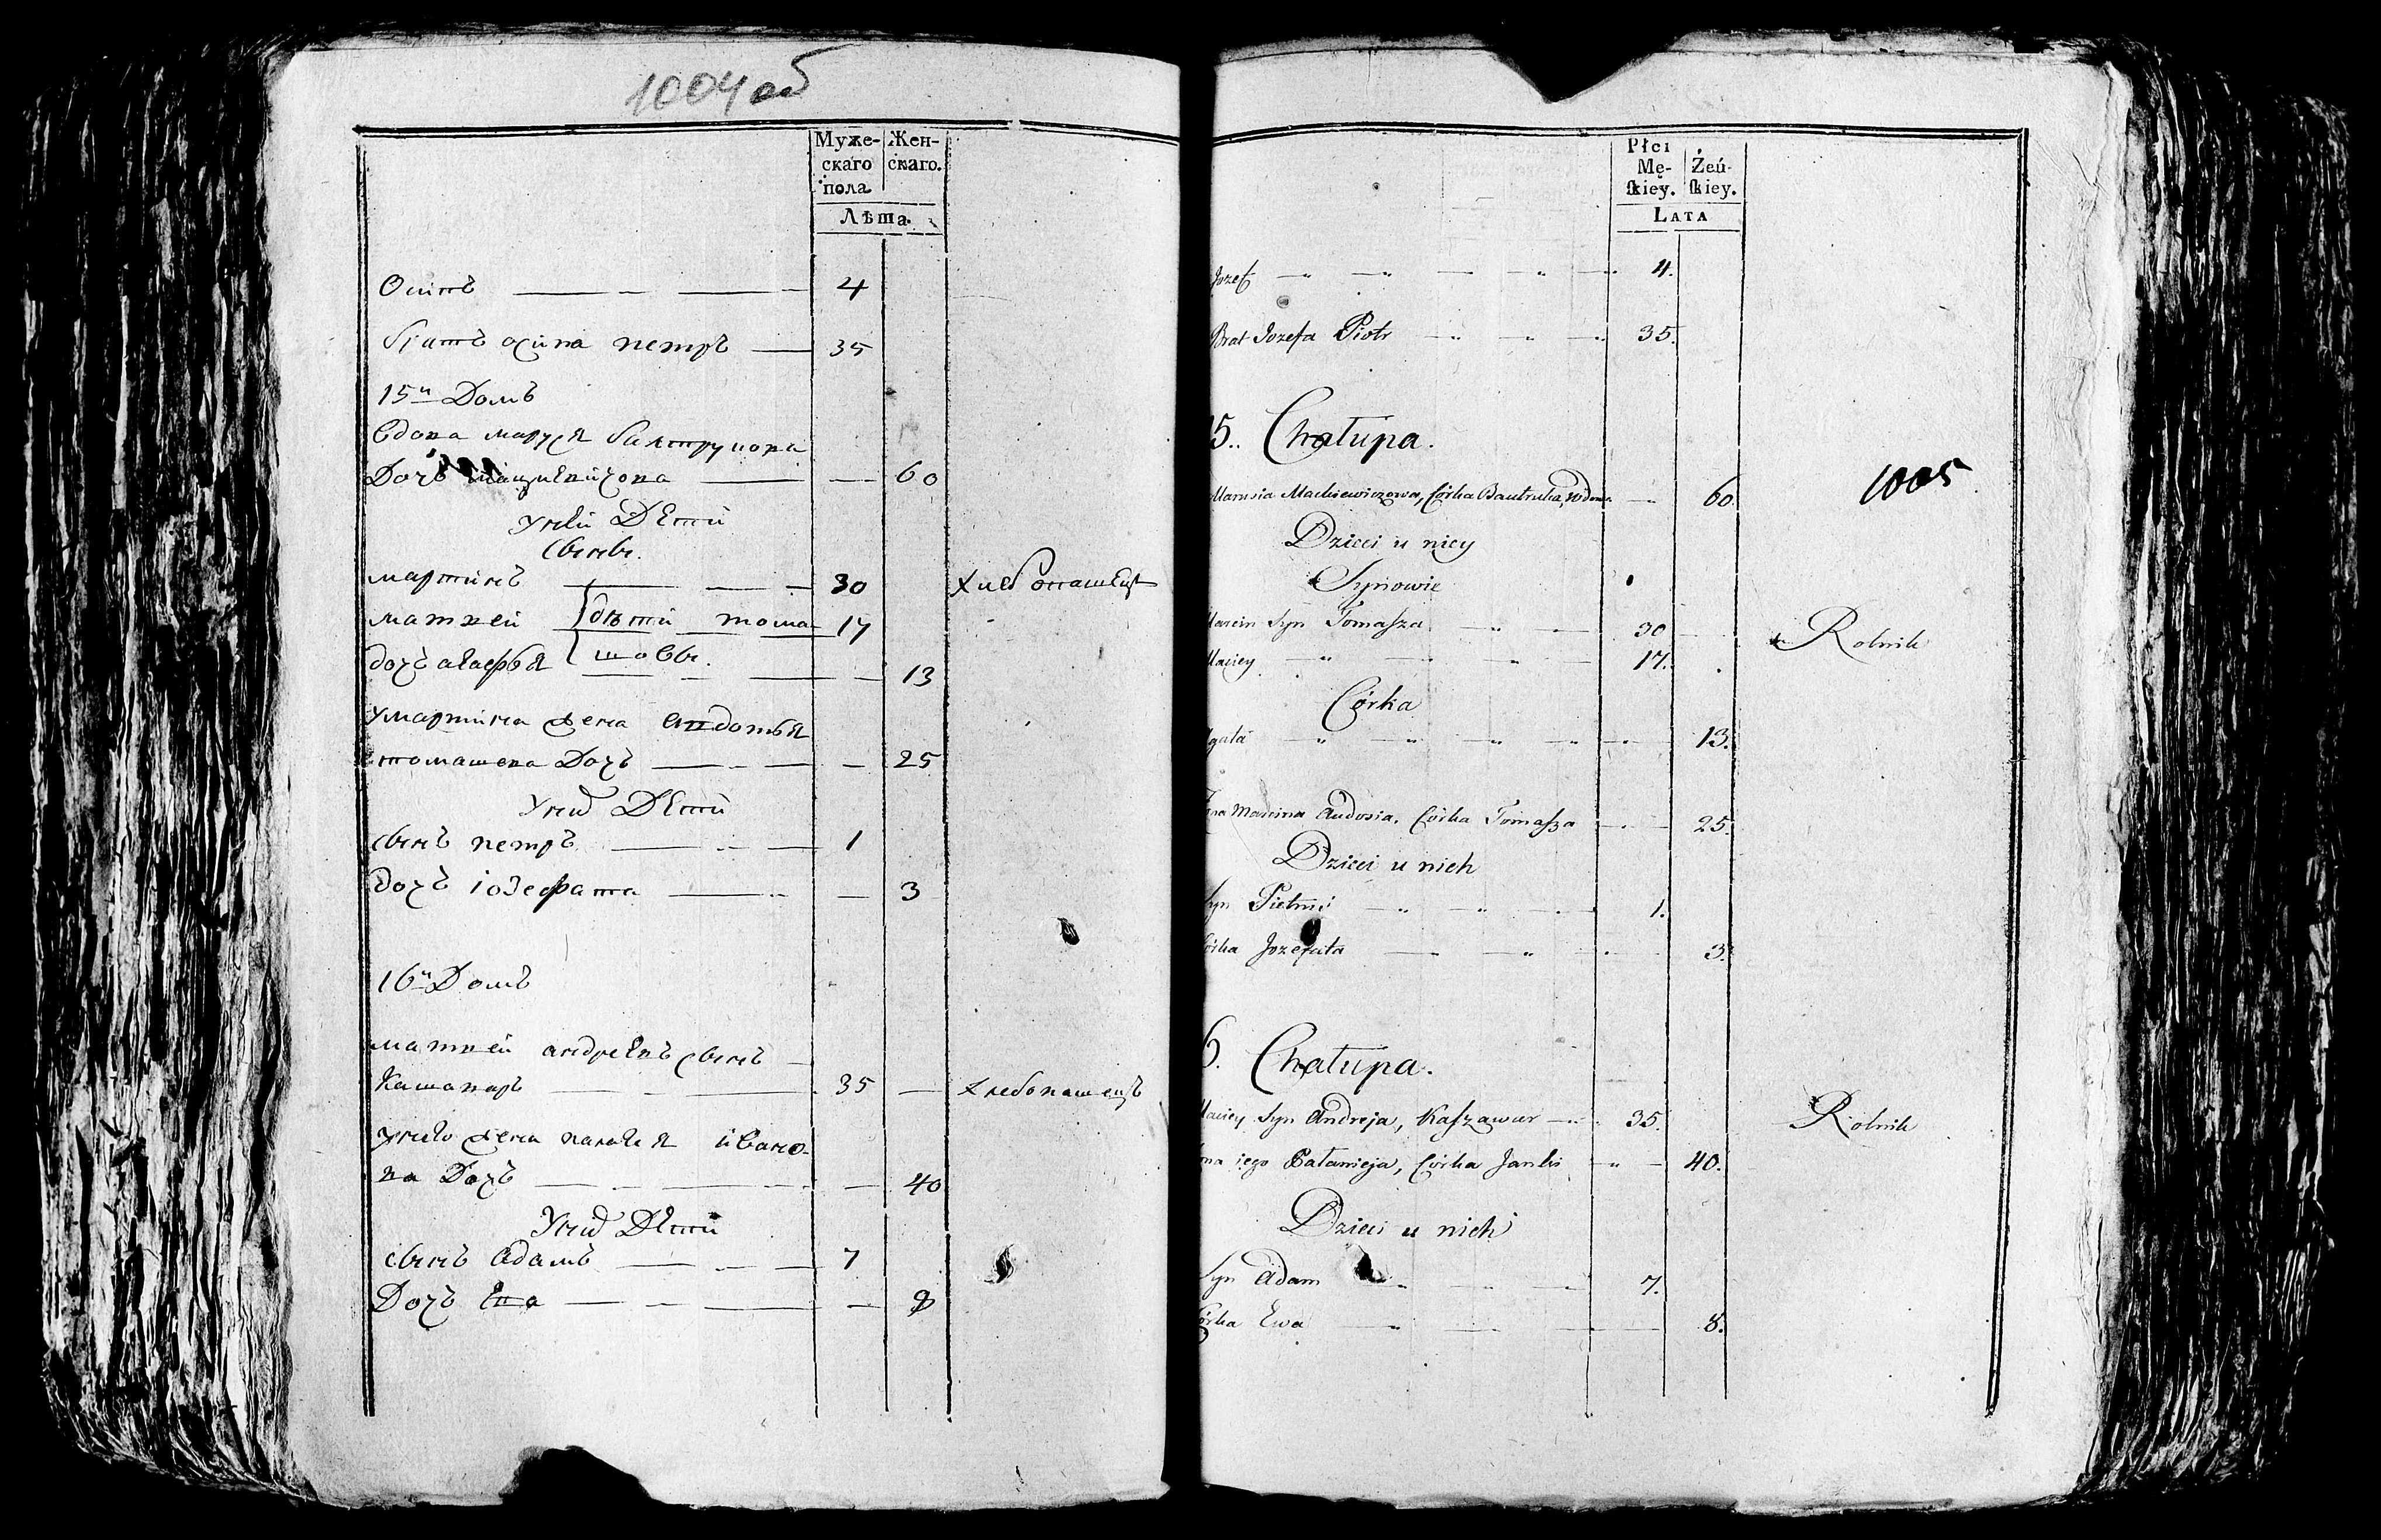 1004 об
Муже- Жен-
скаго скаго.
пола
Лѣта.
Осипъ 4
братъ осипа петръ 35
15й Домъ
Вдова маруся балтруцова
Дочь мацкевичова 60
У ней Дети
Сыны.
мартинъ 30 Хлебопашецъ
матвей дѣти тома- 17
дочь агафья шовы. 13
У мартина жена авдотья
томашева Дочь 25
У них Дети
сынъ петръ 1
дочь іозефата 3
16й Домъ
матвей андреевъ сынъ
Кашаваръ 35 Хлебопашецъ
у него жена паланея ивано-
ва Дочь 40
У них Дети
сынъ адамъ 7
Дочь Ева 8
Płci
Mę- Żeń-
ſkiey. ſkiey.
LATA
Jozef 4.
Brat Jozefa Piotr 35.
15. Chałupa.
1005
Marusia Mackiewiczowa, Córka Bautruka, Wdowa 60.
Dzieci u niey
Synowie
Marcin Syn Tomaſza 30 Rolnik
Maciey 17.
Córka
Agata 13.
Żona Marcina Audosia, Córka Tomaſza 25.
Dzieci u nich
Syn Pietruś 1.
Córka Jozefata 3.
6. Chałupa.
Maciey Syn Andreja, Kaſzawar 35. Rolnik
Żona iego Pałanieja, Córka Janki 40.
Dzieci u nich
Syn Adam 7.
Córka Ewa 8.